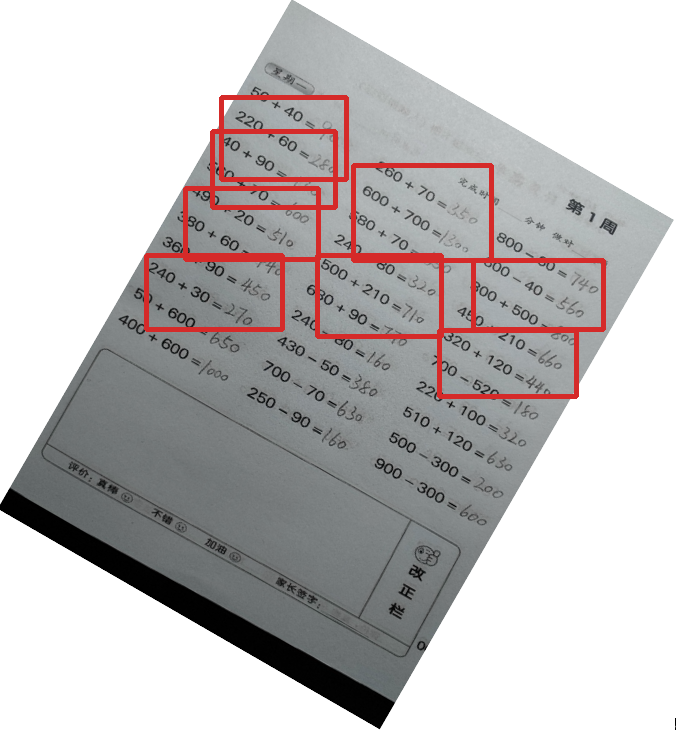 第1周
星期一
完成时间 分钟 做对
50 + 40 = 90
220 + 60 = 280
40 + 90 =
+ 70 = 600
490 + 20 = 510
380 + 60 = 440
360 + 90 = 450
240 + 30 = 270
50 + 600 = 650
400 + 600 = 1000
260 + 70 = 350
600 + 700 = 1300
580 + 70 =
240 + 80 = 320
500 + 210 = 710
680 + 90 = 770
240 – 80 = 160
430 – 50 = 380
700 – 70 = 630
250 – 90 = 160
800 – 60 = 740
600 – 40 = 560
300 + 500 = 800
450 + 210 = 660
320 + 120 = 440
700 – 520 = 180
220 + 100 = 320
510 + 120 = 630
500 – 300 = 200
900 – 300 = 600
改正栏
评价：真棒 不错 加油 家长签字：